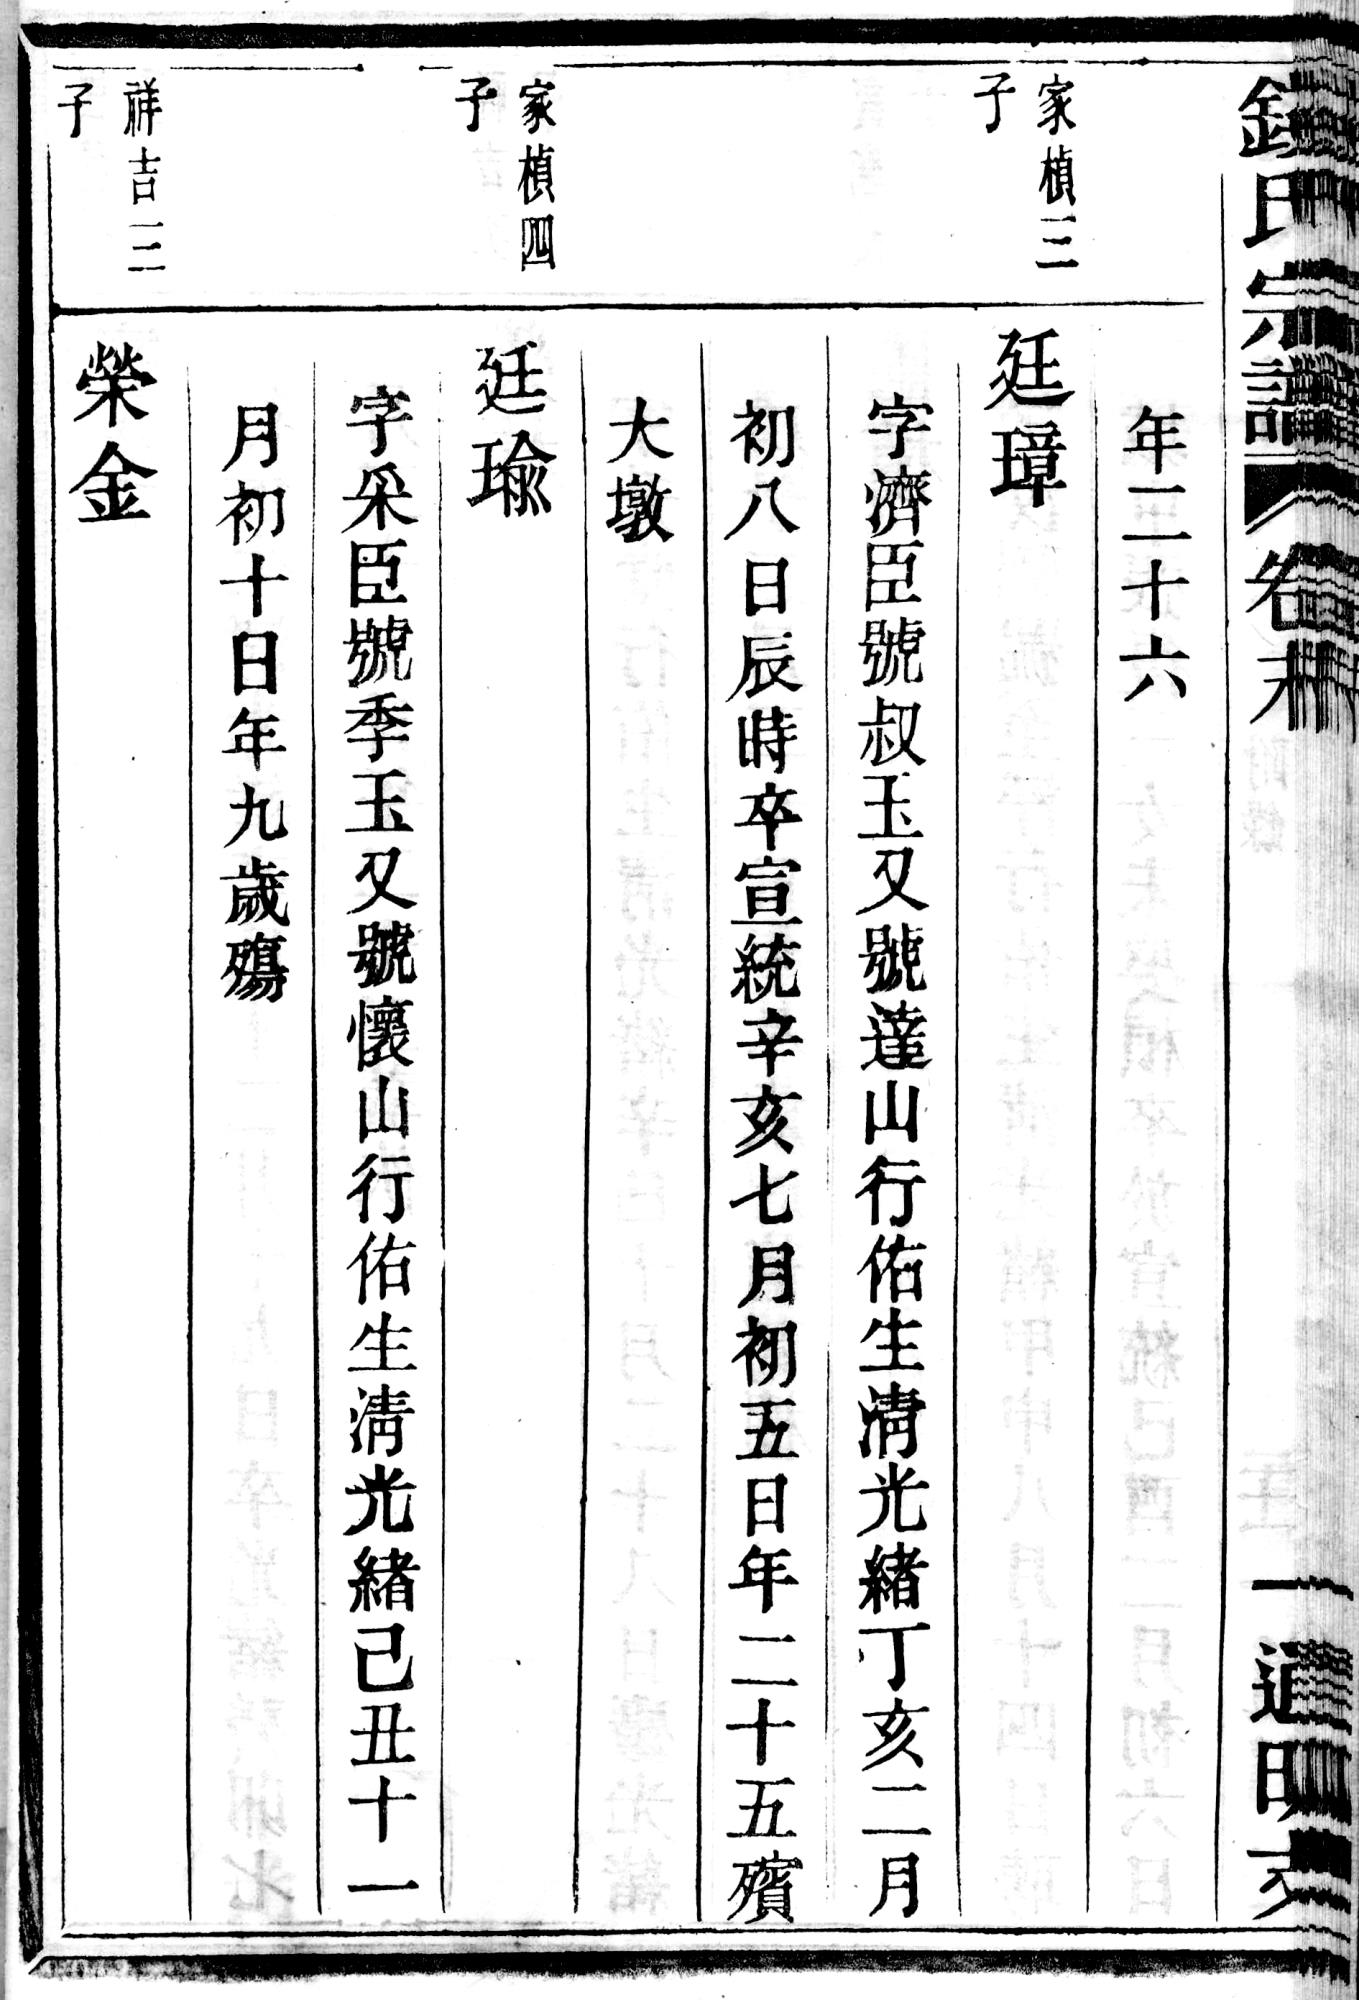 氏宗譜 卷末 一 通明支
年二十六
家楨三
子
廷璋
字濟臣號叔玉又號達山行佑生清光緒丁亥二月
初八日辰時卒宣統辛亥七月初五日年二十五殯
大墩
家楨四
子
廷瑜
字采臣號季玉又號懷山行佑生清光緒己丑十一
月初十日年九歲殤
祥吉一二
子
榮金